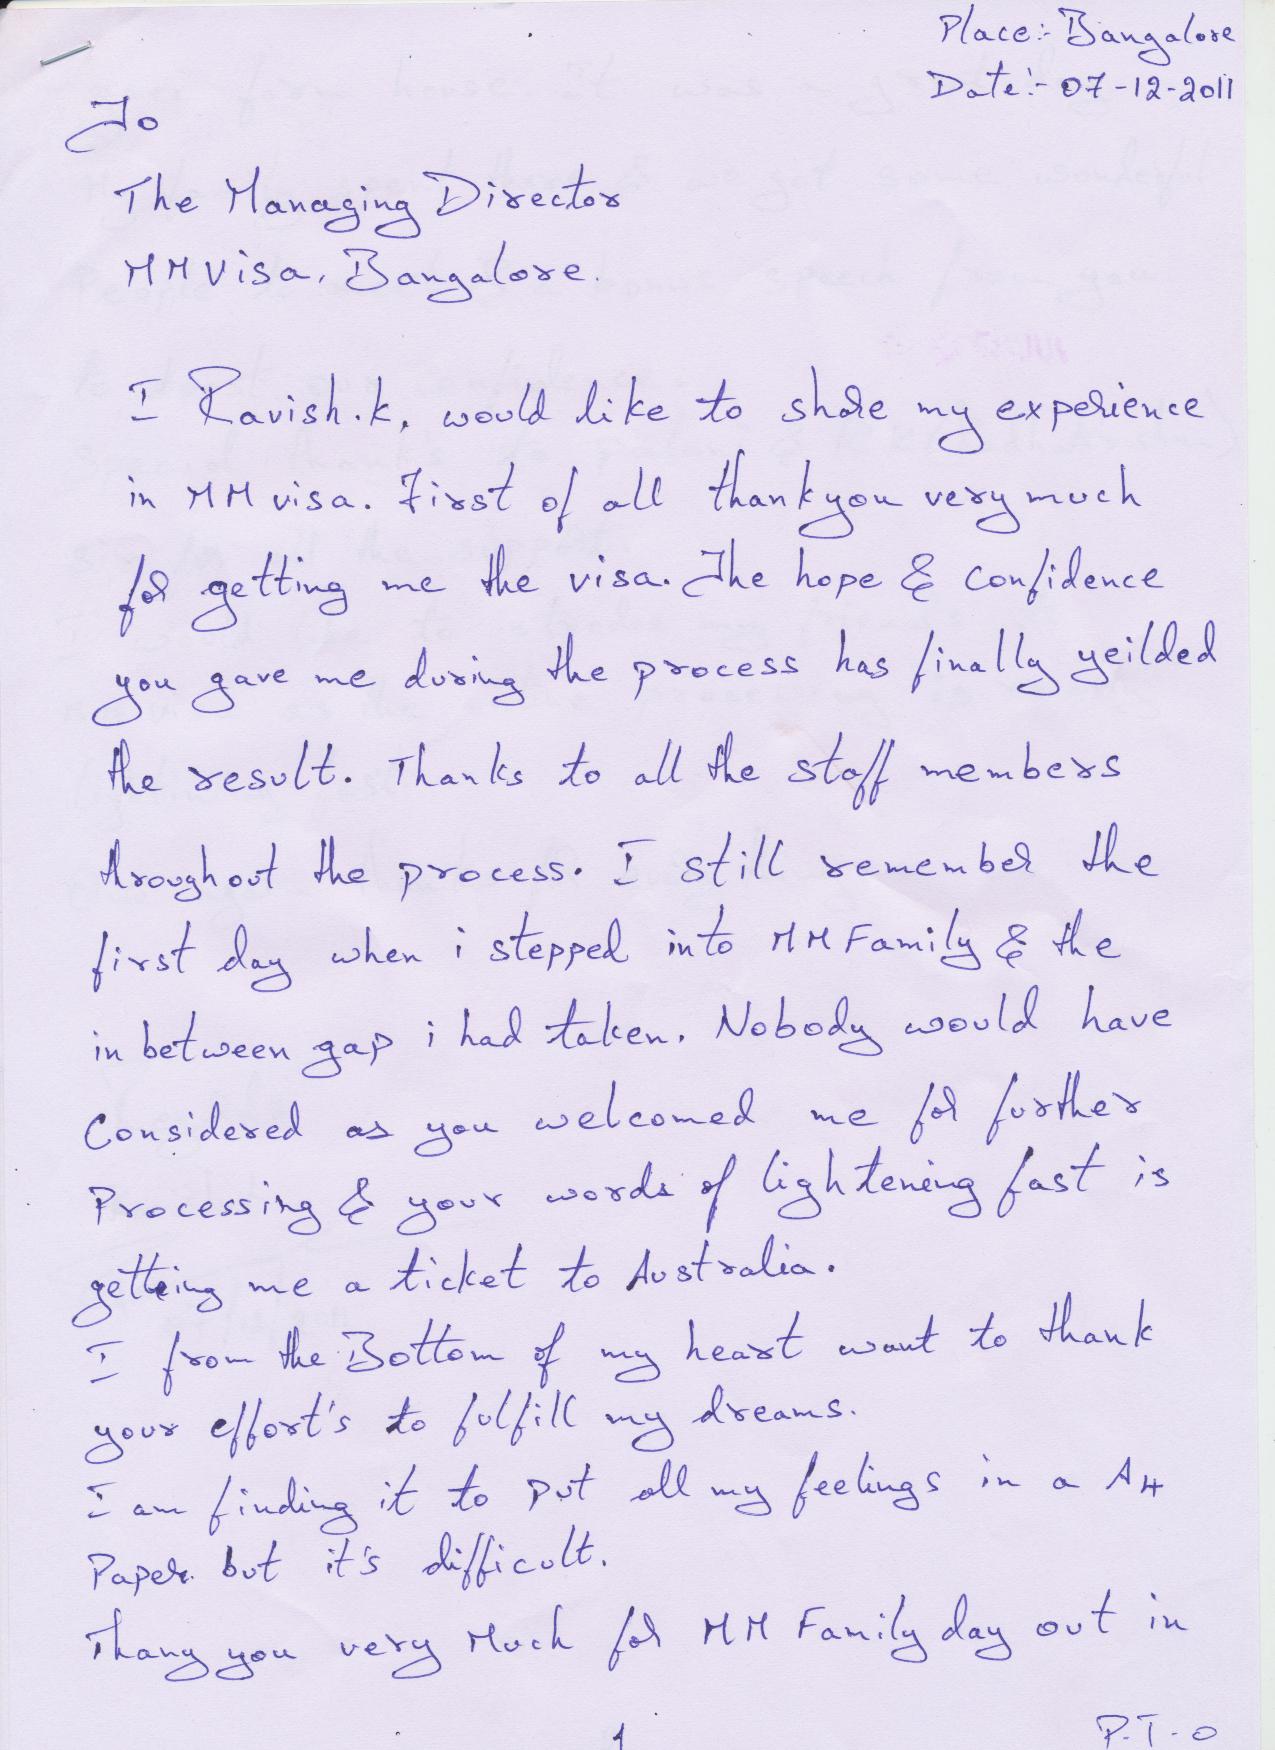 Place:- Bangalore
Date:- 07-12-2011
To
The Managing Director
MM Visa, Bangalore.
I Ravish.k, would like to share my experience
in MM visa. First of all thankyou very much
for getting me the visa. The hope & confidence
you gave me during the process has finally yeilded
the result. Thanks to all the staff members
throughout the process. I still remember the
first day when i stepped into MM Family & the
in between gap i had taken. Nobody would have
Considered as you welcomed me for further
Processing & your words of lightening fast is
getting me a ticket to Australia.
I from the Bottom of my heart want to thank
your effort's to fulfill my dreams.
I am finding it to put all my feelings in a A4
Paper but it's difficult.
Thany you very Much for MM Family day out in
1
P.T.O